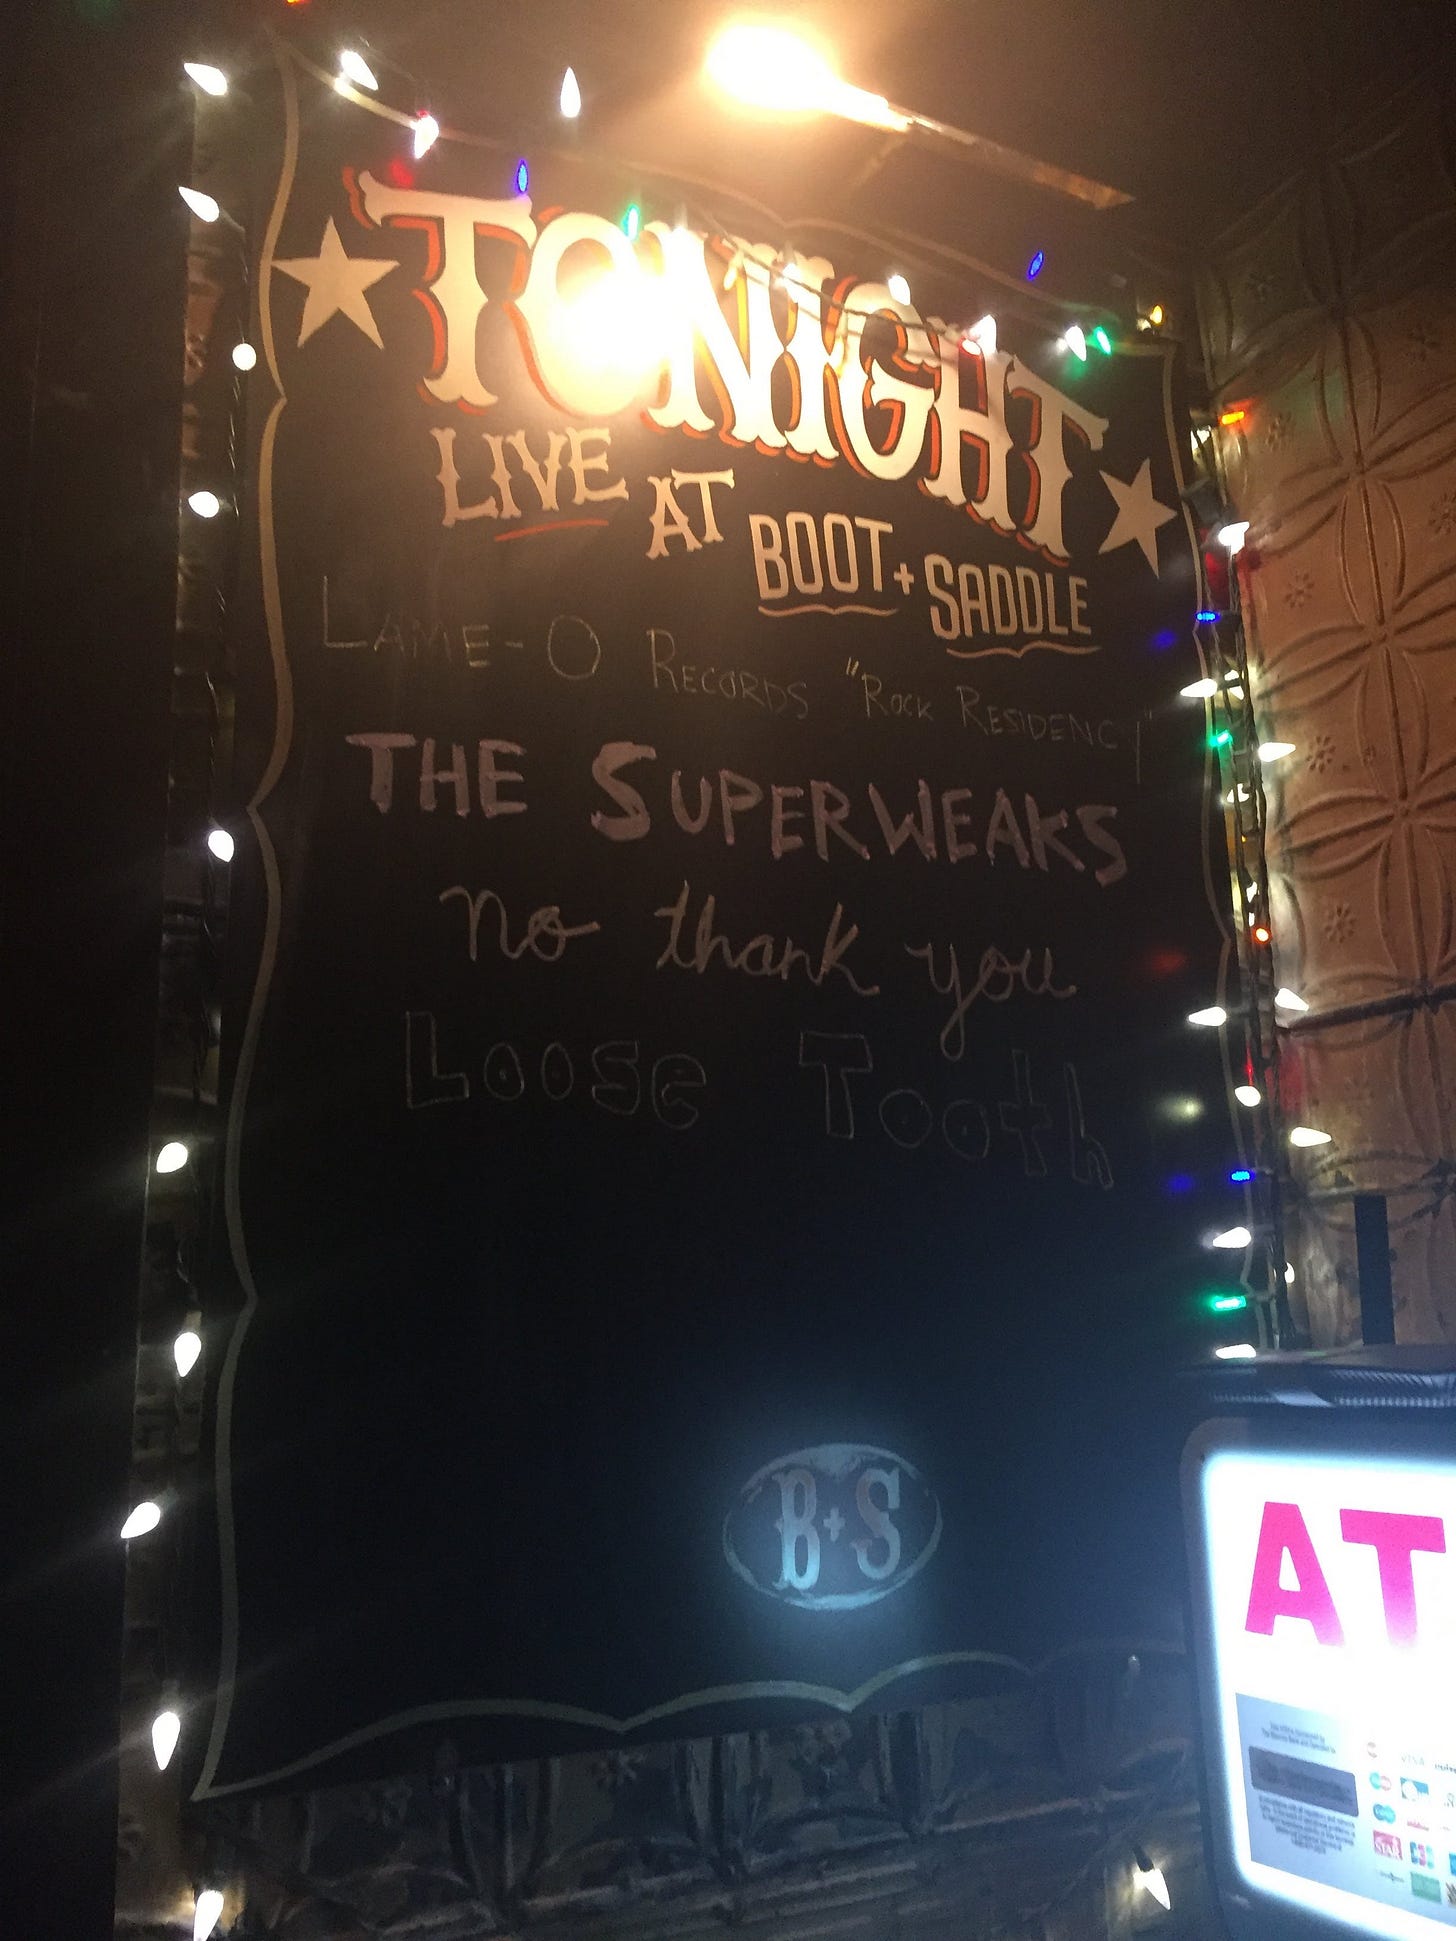 TONIGHT
LIVE AT BOOT + SADDLE
LAME-O RECORDS "ROCK RESIDENCY"
THE SUPERWEAKS
no thank you
Loose Tooth
B+S
AT
VISA
STAR